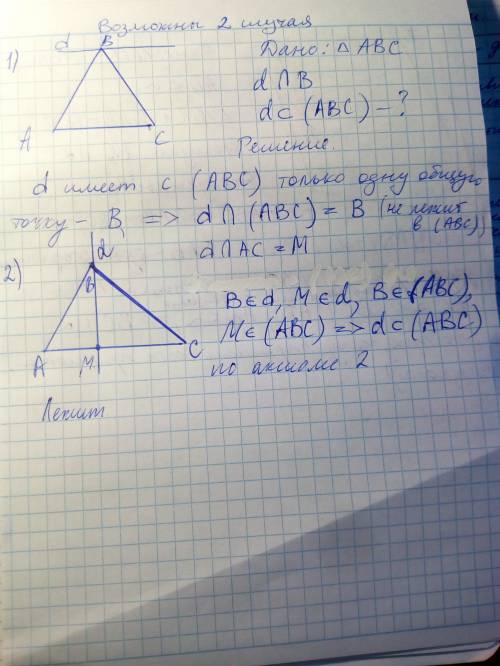 Возможны 2 случая
1)
d B
A C
Дано: △ ABC
d ∩ B
d ⊂ (ABC) - ?
Решение.
d имеет с (ABC) только одну общую
точку - B, => d ∩ (ABC) = B (не лежит
в (ABC))
d ∩ AC = M
2)
d
B
A M C
B ∈ d, M ∈ d, B ∈ (ABC),
M ∈ (ABC) => d ⊂ (ABC)
по аксиоме 2
Лежит